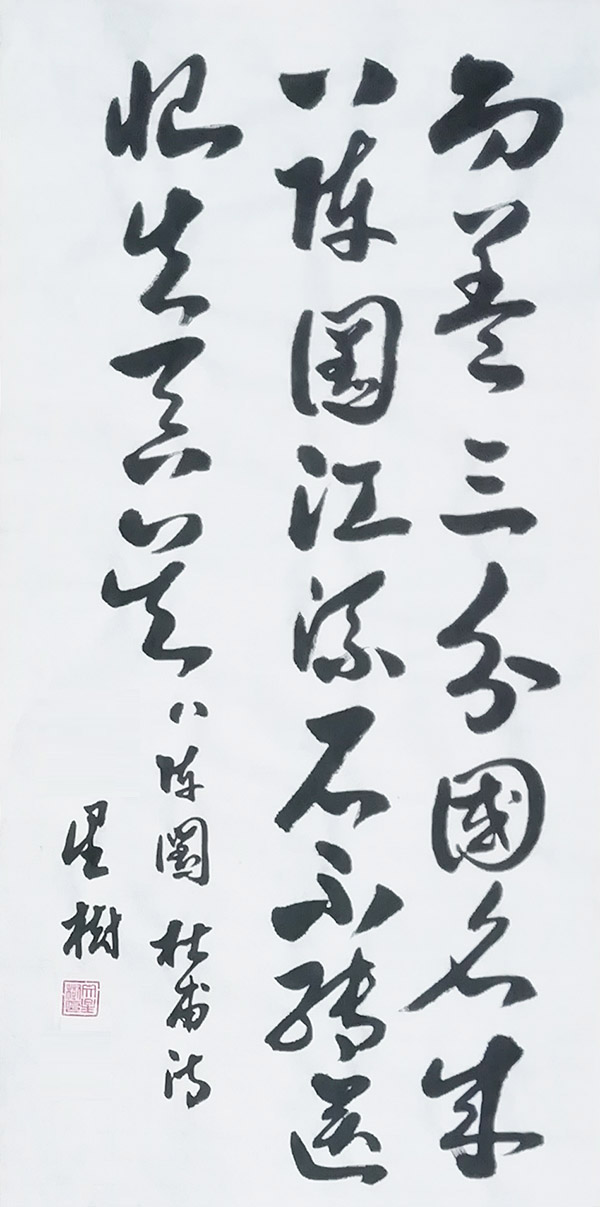 功盖三分國名成
八陣圖江流石不轉遺
恨失吞吴八陣圖 杜甫詩
星樹